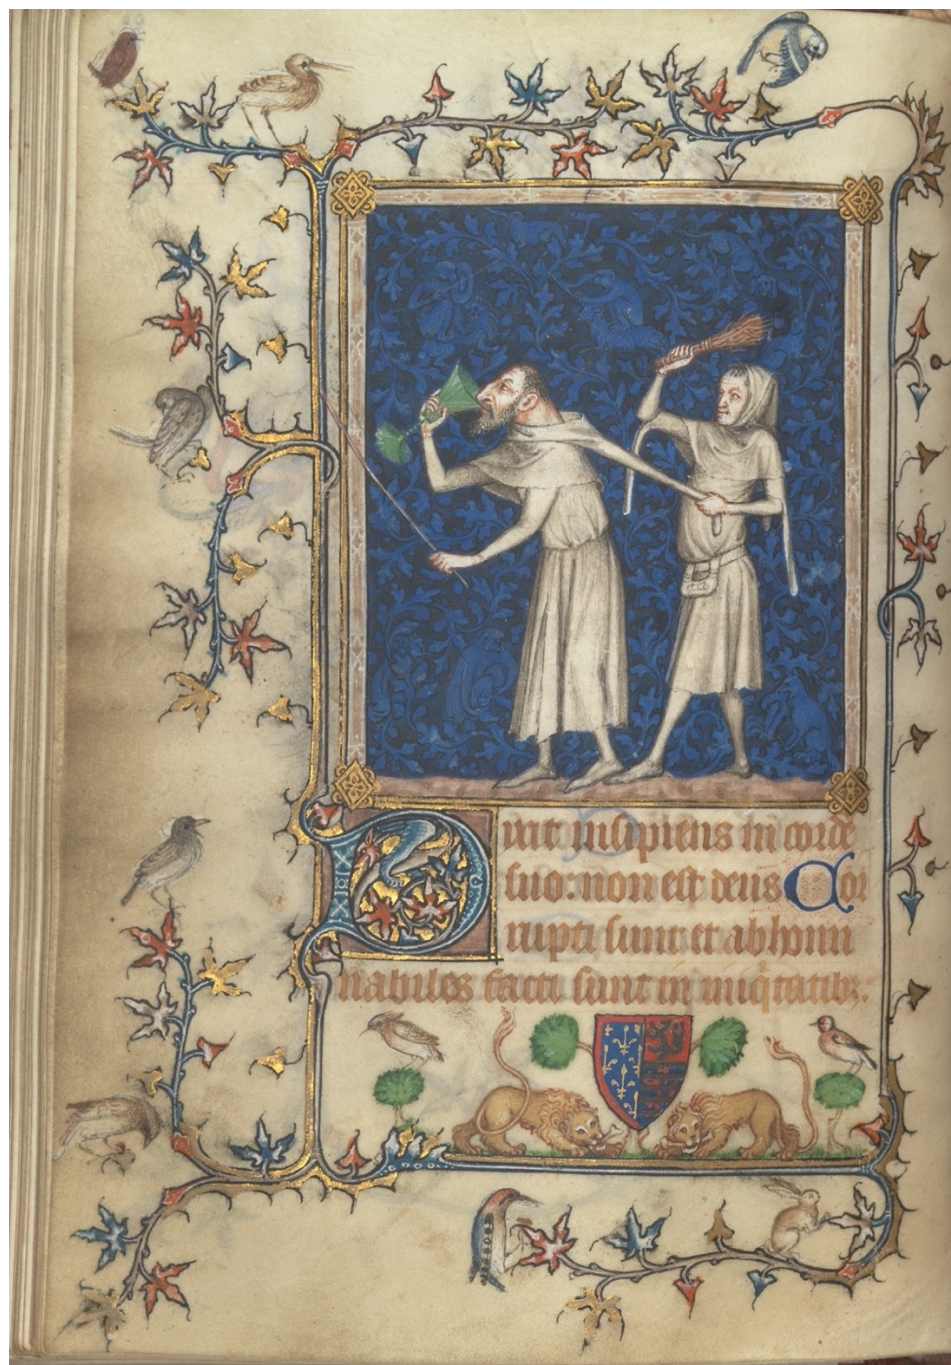 Dixit insipiens in corde
suo: non est deus Cor
rupti sunt et abhomi
nabiles facti sunt in iniq̃tatibꝫ: